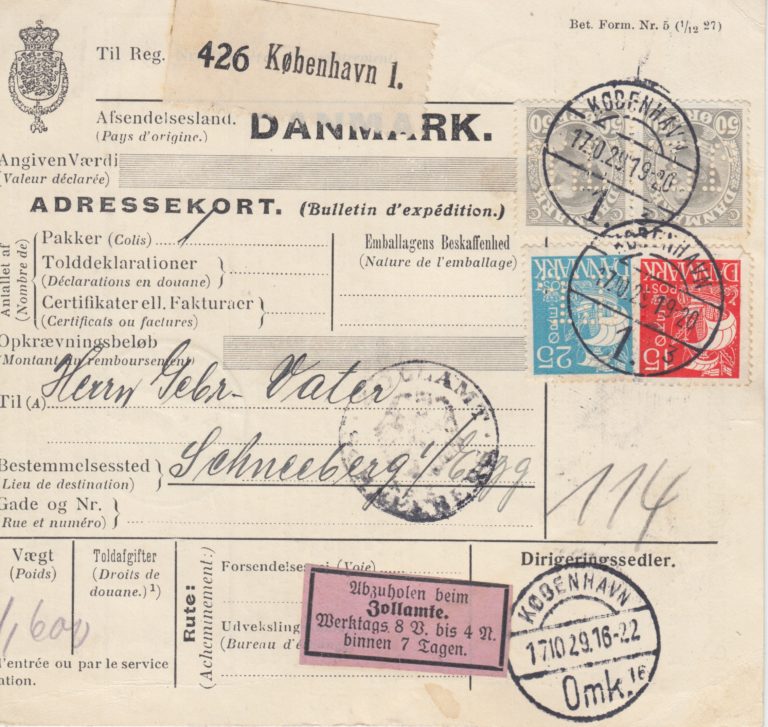 Bet. Form. Nr. 5 (1/12 27)
Til Reg.
426 København 1.
Afsendelsesland.
(Pays d'origine.)
DANMARK.
Angiven Værdi
(Valeur déclarée)
ADRESSEKORT. (Bulletin d'expédition.)
Antallet af
(Nombre de)
Pakker (Colis)
Tolddeklarationer
(Déclarations en douane)
Certifikater ell. Fakturaer
(Certificats ou factures)
Emballagens Beskaffenhed
(Nature de l'emballage)
Opkrævningsbeløb
(Montant du remboursement)
Til (A)
Herrn Gebr. Vater
Bestemmelsessted
(Lieu de destination)
Schneeberg i/Erzg
Gade og Nr.
(Rue et numéro)
114
Vægt
(Poids)
Toldafgifter
(Droits de
douane.)¹)
1,600
l'entrée ou par le service
ation.
Rute:
(Acheminement:)
Forsendelsesvej (Voie)
Udveksling
(Bureau d'é
Abzuholen beim
Zollamte.
Werktags 8 V. bis 4 N.
binnen 7 Tagen.
Dirigeringssedler.
KØBENHAVN
17.10.29.16-22
Omk. 16
KØBENHAVN
17.10.29 19-20
1.
KØBENHAVN
17.10.29 19-20
1.
50
DANMARK
50
DANMARK
DANMARK
POST
25
DANMARK
POST
15